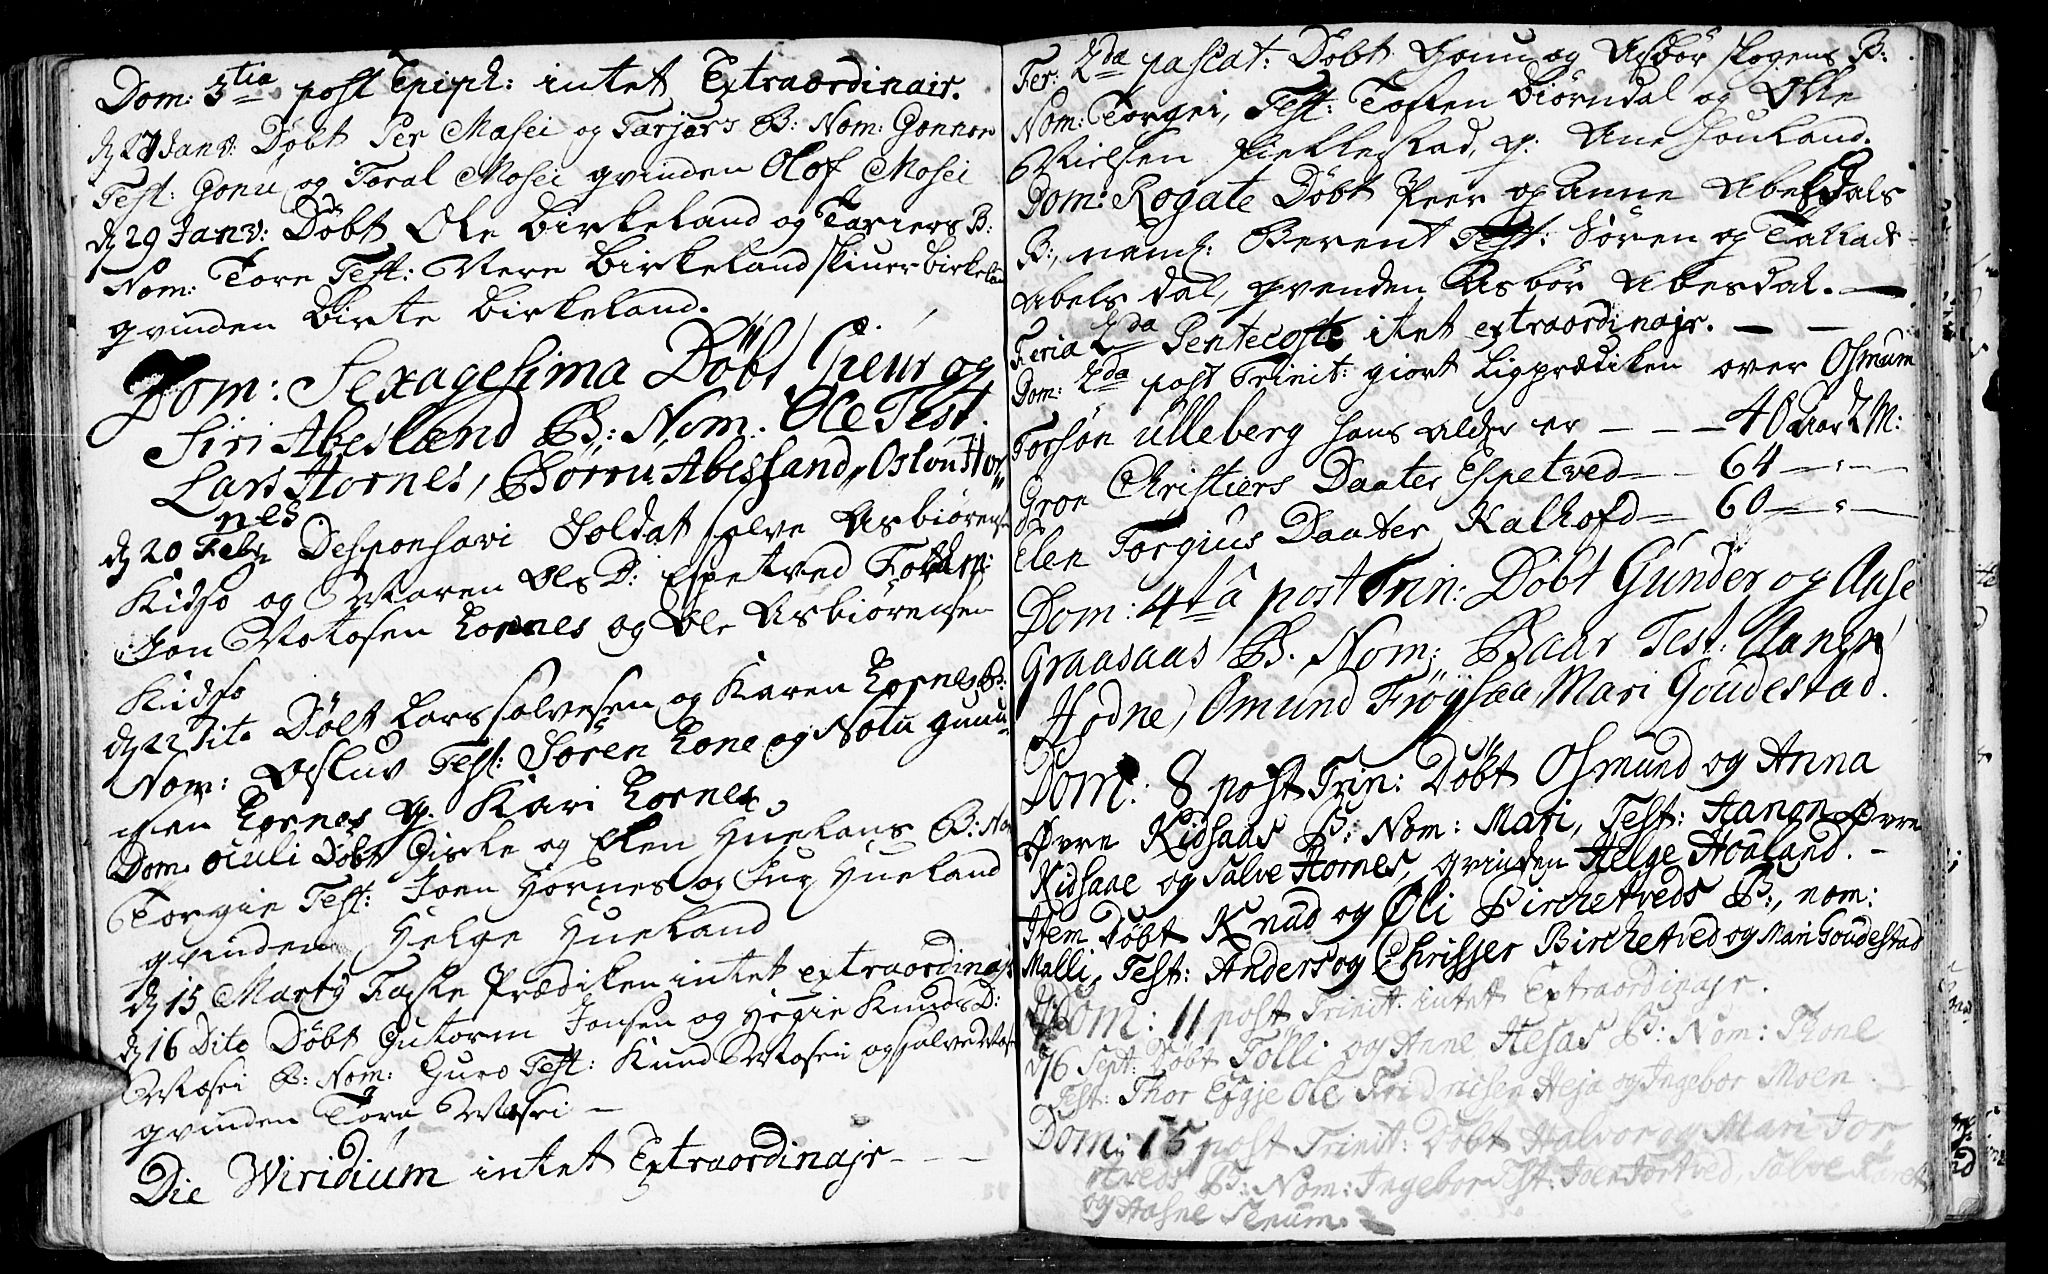 Dom: 3tia post Epiph: intet Extraordinair.
d 27 Janv: Døbt Per Masei og Tarjers B: Nom: Gonnor
Test: Gonu og Toral Mosei qvinden Olof Mosei
d 29 Janv: Døbt Ole Birkeland og Tariers B:
Nom: Tore Test: Vere Birkeland skiuer Birkeland
qvinden Birte Birkeland.
Dom: Sexagesima Døbt Gieur og
Siri Abesland B: Nom: Ole Test.
Lars Hornes, Børru Abesland, Oslou Hor
nes
d 20 Febr Desponsavi Soldat Salve Asbiørens
Kidso og Maren Ols D: Espetved
Jon Motosen Hornes og Ole Asbiørensen
Kidso
d 22 Dito Døbt Lars Salvesen og Karen Hornes B:
Nom: Osluv Test: Søren Hone og Notu gunu
sen Hornes q. Kari Hornes
Dom: Oculi Døbt Giske og Elen Huelans B: Nom
Torgie Test: Joen Hornes og Hueland
qvinden Helge Hueland
d 15 Marty Faste Prædiken intet extraordinajr
d 16 Dito Døbt Gutorm Jonsen og Hegie Knuds D:
Mosei B: Nom: Guro Test: Knud Mosei og Salve Mosei
qvinden Tore Mosei —
Die Viridium intet Extraordinajr - - -
Fer: 2da pascat: Døbt Gonu og Asbør Skogens B:
Nom: Torgei, Test: Tosten Biørndal og Olle
Nielsen Fiellestad, q: Ane Houland.
Dom: Rogate Døbt Peer og Anne Abelsdals
B:, naml: Berent Test: Søren og Tallak
Abelsdal, qvenden Asbør Abesdal. —
Feria 2da Pentecoste itet extraordinajr. — —
Dom: 2da post Trinit: giort Ligprædiken over Osmum
Torsøn Ulleberg hans Alder er — — — 40 Aar 2 M:
Gron Christiers Daater Espetved — - 64 — : —
Elen Torgius Daater Kalhofd — 60 — : —
Dom: 4ta post Trin: Døbt Gunder og Aase
Graasaas B. Nom: Baar Test: Aanen
Hodne, Omund Frøysaa, Mari Goudestad.
Dom: 8 post Trin: Døbt Osmund og Anna
Øvre Kidsaas B: Nom: Mari, Test: Hanon Øvre
Kidsaae og Salve Hornes, qvinden Helge Houland. -
Item Døbt Knud og Øli Birchetveds B:, nom:
Malli, Test: Anders og Chrisser Birchetved og Mari Goudestad
Dom: 11 post Trinit: intet Extraordinajr.
d 6 Sept: Døbt Tolli og Anne Hesaas B: Nom: Thone
Test: Thor Ole Fridrichsen Heja og Ingebor Moen
Dom: 15 post Trinit: Døbt Halvor og Mari Tor
tveds B: Nom: Ingebor Test: Joen Tortved, Salve
og Aasne Senum.